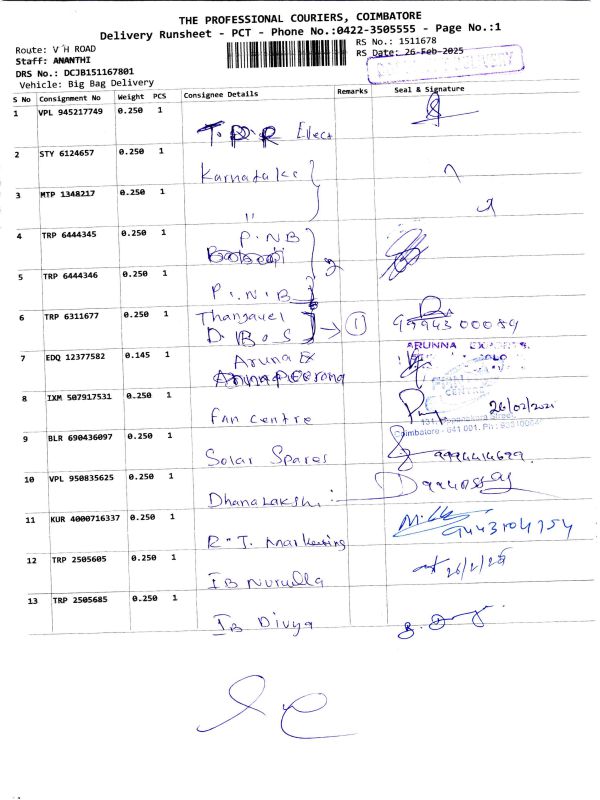 THE PROFESSIONAL COURIERS, COIMBATORE
Delivery Runsheet - PCT - Phone No.:0422-3505555 - Page No.:1
Route: V H ROAD
RS No.: 1511678
Staff: ANANTHI
RS Date: 26-Feb-2025
DRS No.: DCJB151167801
Vehicle: Big Bag Delivery
S No Consignment No Weight PCS Consignee Details Remarks Seal & Signature
1 VPL 945217749 0.250 1
T.P.R Elect
2 STY 6124657 0.250 1
Karnataka
3 MTP 1348217 0.250 1
"
4 TRP 6444345 0.250 1
P.N.B
2
5 TRP 6444346 0.250 1
P.N.B
6 TRP 6311677 0.250 1
Thangavel
D. BOS 1 99943 00089
7 EDQ 12377582 0.145 1
Aruna Ex ARUNNA EXPORTS
8 IXM 507917531 0.250 1
Fan Centre
9 BLR 690436097 0.250 1
Coimbatore - 641 001.
Solar Spares
10 VPL 950835625 0.250 1
Dhanalakshi
11 KUR 4000716337 0.250 1
R.T. Marketing
12 TRP 2505605 0.250 1
IB Nurulla 26/2/25
13 TRP 2505685 0.250 1
IB Divya